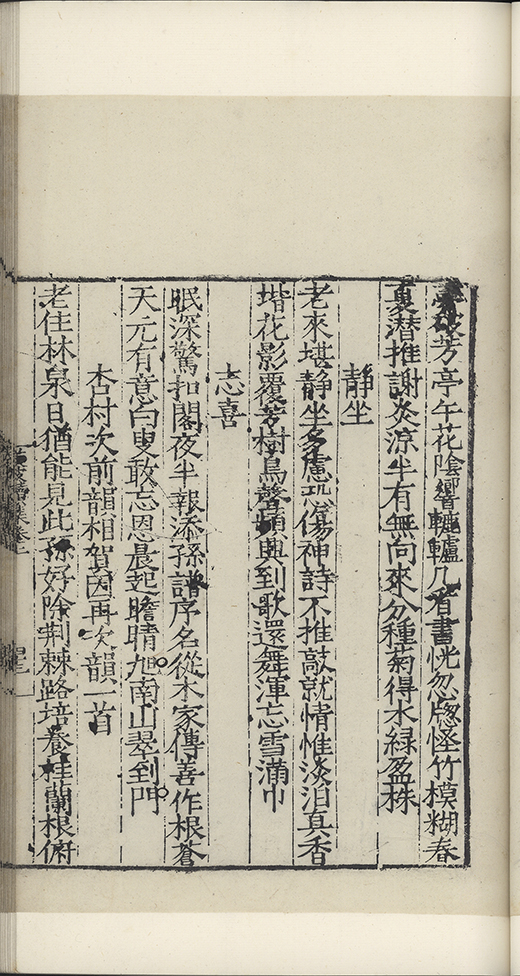 芳亭午花陰響轆轤几有書恍忽牕怪竹模糊春
裏潛推謝炎涼半有無向來分種菊得水綠盈株
靜坐
老來堪靜坐多慮恐傷神詩不推敲就情惟淡泊真香
堦花影覆芳樹鳥聲頻興到歌還舞渾忘雪滿巾
志喜
眠深驚扣閣夜半報添孫譜序名從木家傳善作根蒼
天元有意白叟敢忘恩晨起瞻晴旭南山翠到門
杏村次前韻相賀因再次韻一首
老住林泉日猶能見此孫好除荆棘路培養桂蘭根俯